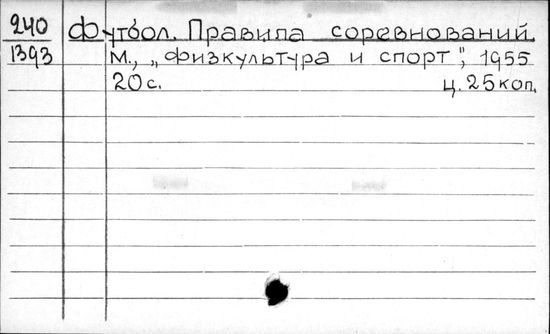 240 Футбол. Правила соревнований.
1393 М., „Физкультура и спорт", 1955
20 с. ц. 25 коп.